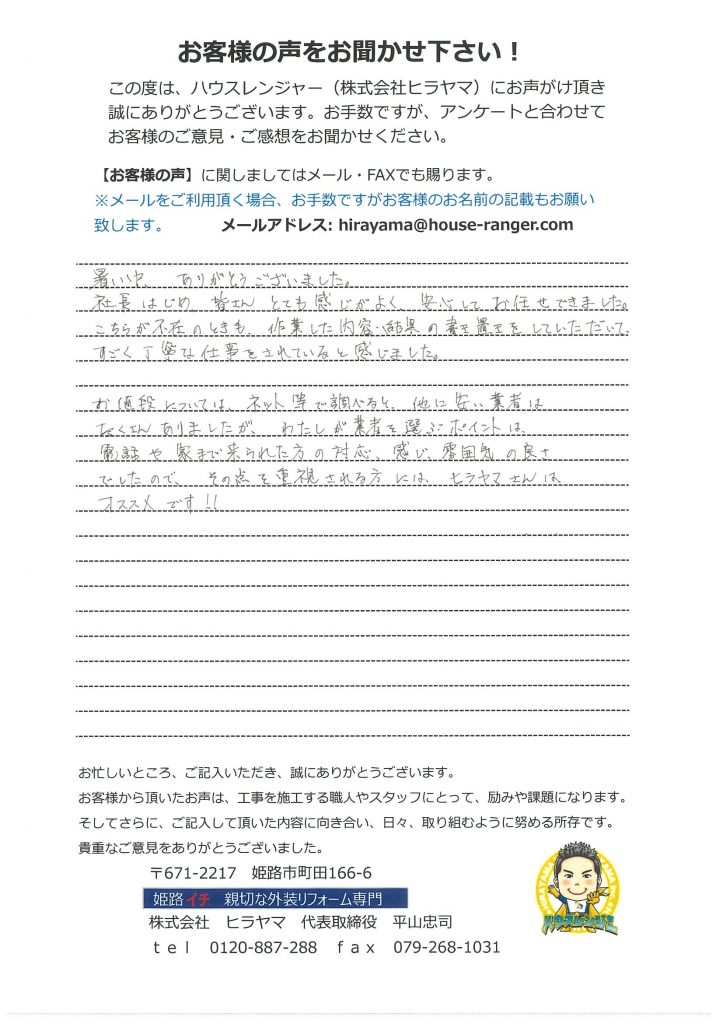 お客様の声をお聞かせ下さい！
この度は、ハウスレンジャー（株式会社ヒラヤマ）にお声がけ頂き
誠にありがとうございます。お手数ですが、アンケートと合わせて
お客様のご意見・ご感想をお聞かせください。
【お客様の声】に関しましてはメール・FAXでも賜ります。
※メールをご利用頂く場合、お手数ですがお客様のお名前の記載もお願い
致します。 メールアドレス: hirayama@house-ranger.com
暑い中、ありがとうございました。
社長はじめ 皆さん とても感じがよく、安心してお任せできました。
こちらが不在のときも、作業した内容・結果の書き置きをしていただいて、
すごく丁寧な仕事をされていると感じました。
お値段については、ネット等で調べると、他に安い業者は
たくさんありましたが、わたしが業者を選ぶポイントは、
電話や家まで来られた方の対応、感じ、雰囲気の良さ
でしたので、その点を重視される方には、ヒラヤマさんは
オススメです!!
お忙しいところ、ご記入いただき、誠にありがとうございます。
お客様から頂いたお声は、工事を施工する職人やスタッフにとって、励みや課題になります。
そしてさらに、ご記入して頂いた内容に向き合い、日々、取り組むように努める所存です。
貴重なご意見をありがとうございました。
〒671-2217 姫路市町田166-6
姫路イチ 親切な外装リフォーム専門
株式会社 ヒラヤマ 代表取締役 平山忠司
ｔｅｌ 0120-887-288 ｆａｘ 079-268-1031
ハウスレンジャー